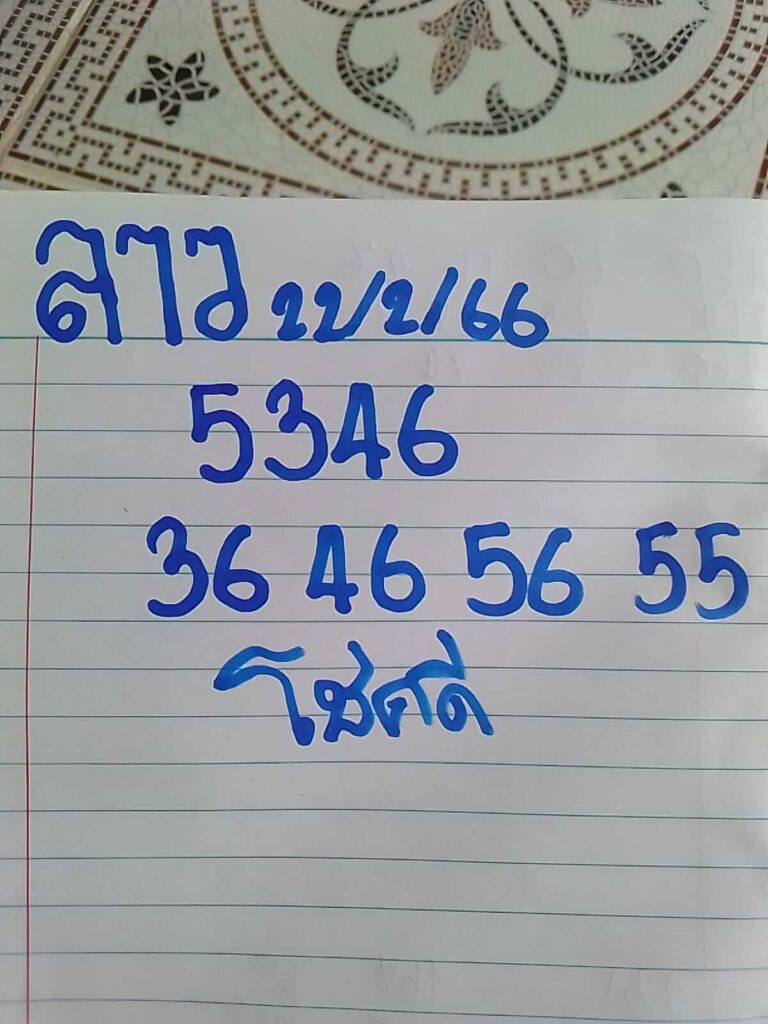 ลาว 22/2/66
5346
36 46 56 55
โชคดี